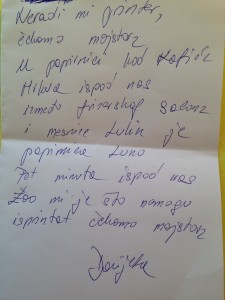 Neradi mi printer,
čekamo majstora
U papirnici kod
Milna ispod nas
između frizerskog salona
i mesnice Lukin je
papirnica Luna
Pet minuta ispod nas
Žao mi je što nemogu
isprintat čekamo majstora
Danijela